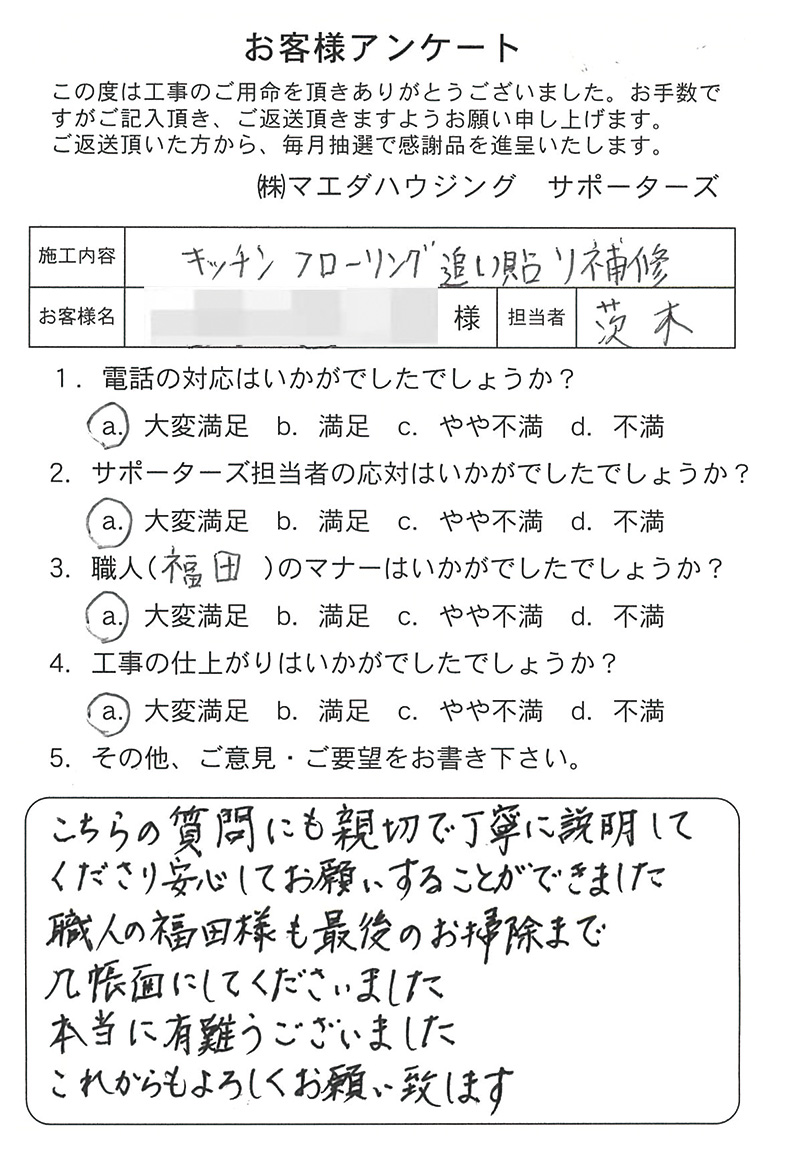 お客様アンケート
この度は工事のご用命を頂きありがとうございました。お手数で
すがご記入頂き、ご返送頂きますようお願い申し上げます。
ご返送頂いた方から、毎月抽選で感謝品を進呈いたします。
㈱マエダハウジング　サポーターズ
施工内容 キッチンフローリング追い貼り補修
お客様名 様 担当者 茨木
1. 電話の対応はいかがでしたでしょうか？
a. 大変満足 b. 満足 c. やや不満 d. 不満
2. サポーターズ担当者の応対はいかがでしたでしょうか？
a. 大変満足 b. 満足 c. やや不満 d. 不満
3. 職人(福田)のマナーはいかがでしたでしょうか？
a. 大変満足 b. 満足 c. やや不満 d. 不満
4. 工事の仕上がりはいかがでしたでしょうか？
a. 大変満足 b. 満足 c. やや不満 d. 不満
5. その他、ご意見・ご要望をお書き下さい。
こちらの質問にも親切で丁寧に説明して
くださり安心してお願いすることができました
職人の福田様も最後のお掃除まで
几帳面にしてくださいました
本当に有難うございました
これからもよろしくお願い致します